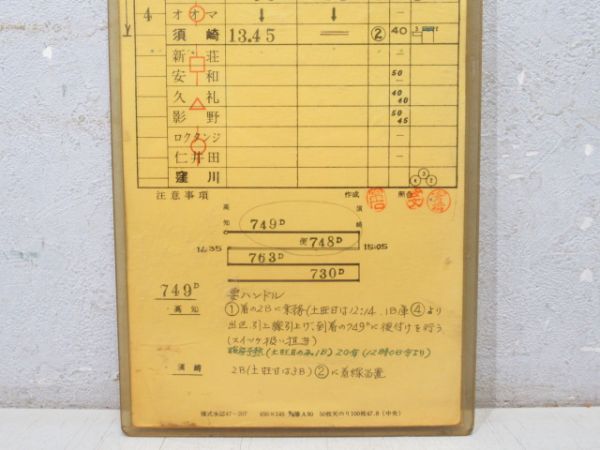 4 オオマ ↓ ↓
須崎 13.45 ＝ ② 40
新荘 —
安和 50 —
久礼 40 40
影野 50 45
ロクタンジ —
仁井田 —
窪川
注意事項 作成 照合
高知 749D 須崎
便748D
14:35 15:05
763D
730D
749D 要ハンドル
高知 ①着の2Bに業務(土曜日は12:14.1B庫④より
出区、引上線引上げ、到着の749Dに後付けを行う
(スイッチ扱い担当)
(土曜日のみ1B) 20分 (12時00分より)
須崎 2B(土曜日は3B)②に着線留置
様式水認47-207 50枚天のり100枚47.8 (中央)